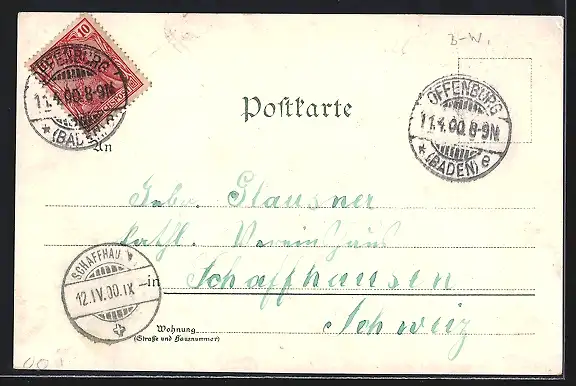 B-W.
10
OFFENBURG
11.4.00.8-9N
* (BADEN)
Postkarte
OFFENBURG
11.4.00.8-9N
* (BADEN) e
An
Gebr. Glausner
kath. Vereinshaus
SCHAFFHAU
12.IV.00.IX
in Schaffhausen
Schweiz
Wohnung
(Straße und Hausnummer)